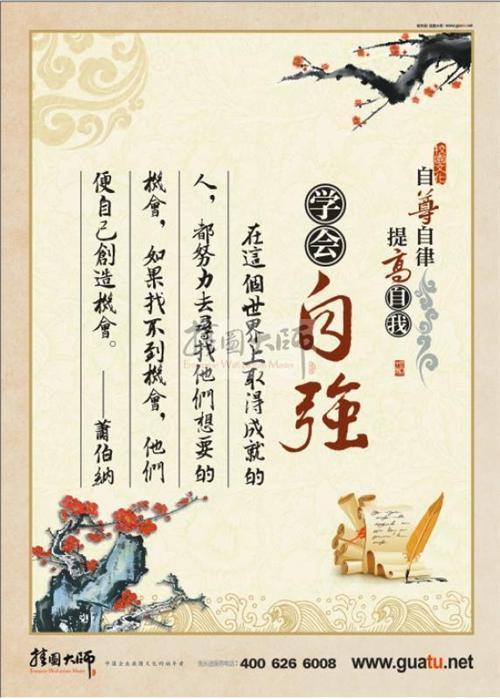 www.guatu.net
校园文化
自尊自律
提高自我
学会
自強
在這個世界上取得成就的
人，都努力去尋找他們想要的
機會，如果找不到機會，他們
便自己創造機會。 ——蕭伯納
挂圖大師
Enterprise Wall picture Master
挂圖大師
400 626 6008
www.guatu.net